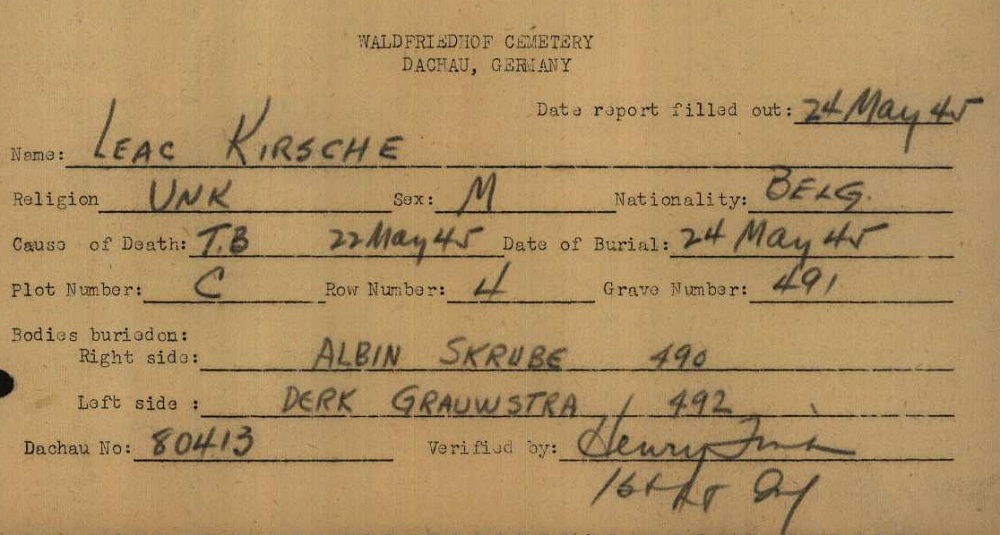 WALDFRIEDHOF CEMETERY
DACHAU, GERMANY
Date report filled out: 24 May 45
Name: LEAC KIRSCHE
Religion UNK Sex: M Nationality: BELG.
Cause of Death: T.B 22 May 45 Date of Burial: 24 May 45
Plot Number: C Row Number: 4 Grave Number: 491
Bodies buriedon:
Right side: ALBIN SKRUBE 490
Left side : DERK GRAUWSTRA 492
Dachau No: 80413 Verified by: Henry
1st Lt